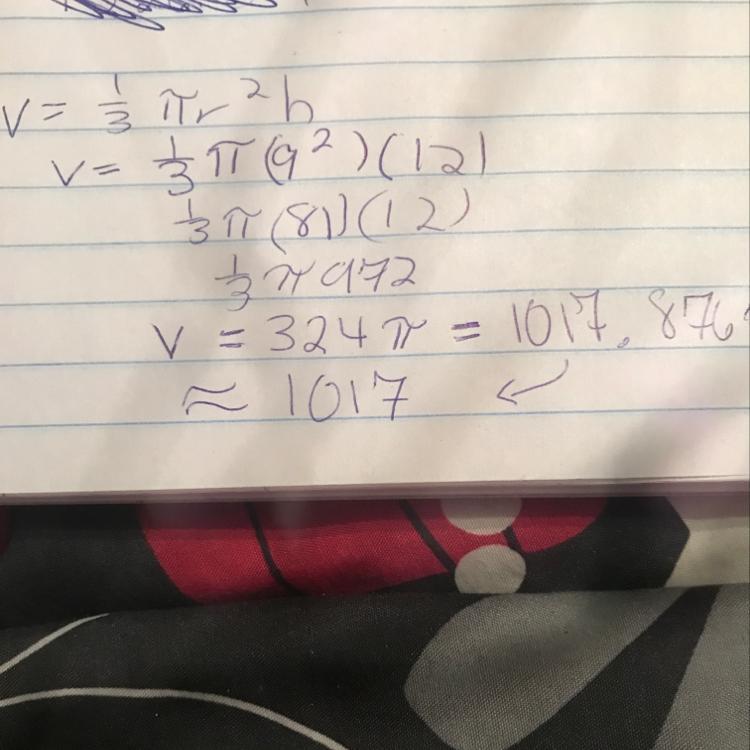 V = 1/3 πr²h
V = 1/3 π(9²)(12)
1/3 π(81)(12)
1/3 π 972
V = 324π = 1017.876
≈ 1017 ↙